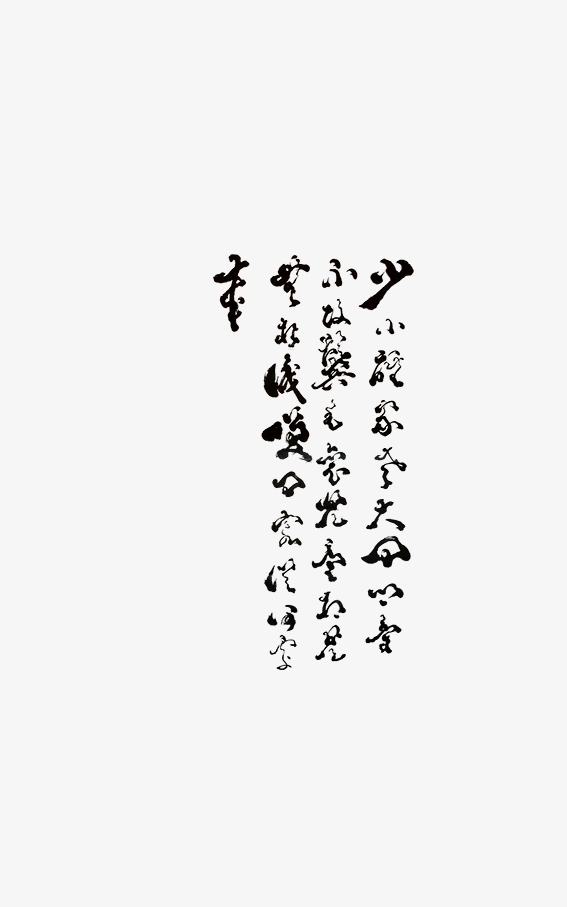 少小離家老大回鄉音
不改鬢毛衰兒童相見
無相識笑問客從何處
來